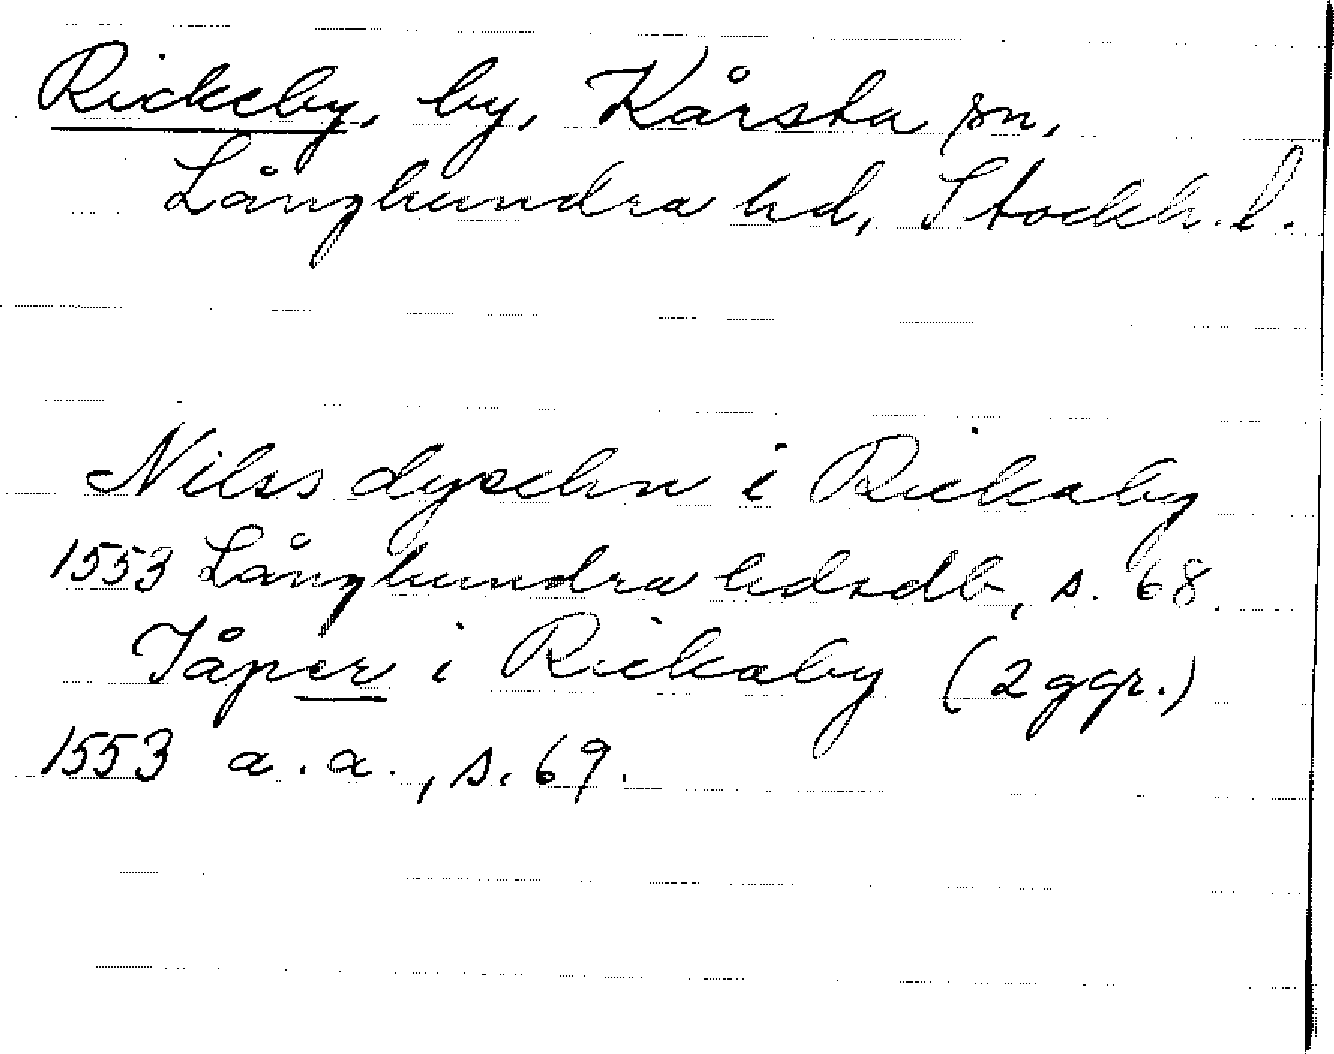 Rickeby, by, Kårsta sn,
Långhundra hd, Stockh. l.
Nilss dyschn i Rickaby
1553 Långhundra hdsdb, s. 68.
Jåper i Rickaby (2 ggr.)
1553 a. a., s. 69.